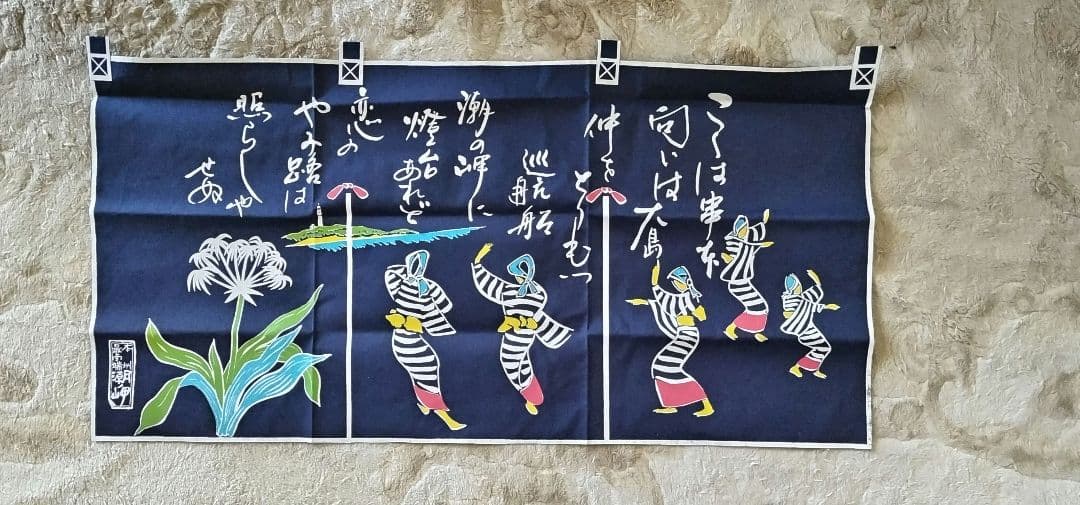 ここは串本
向いは大島
仲をとりもつ
巡航船
潮の岬に
燈台あれど
恋の
やみ路は
照らしや
せぬ
本州
最南端
潮岬